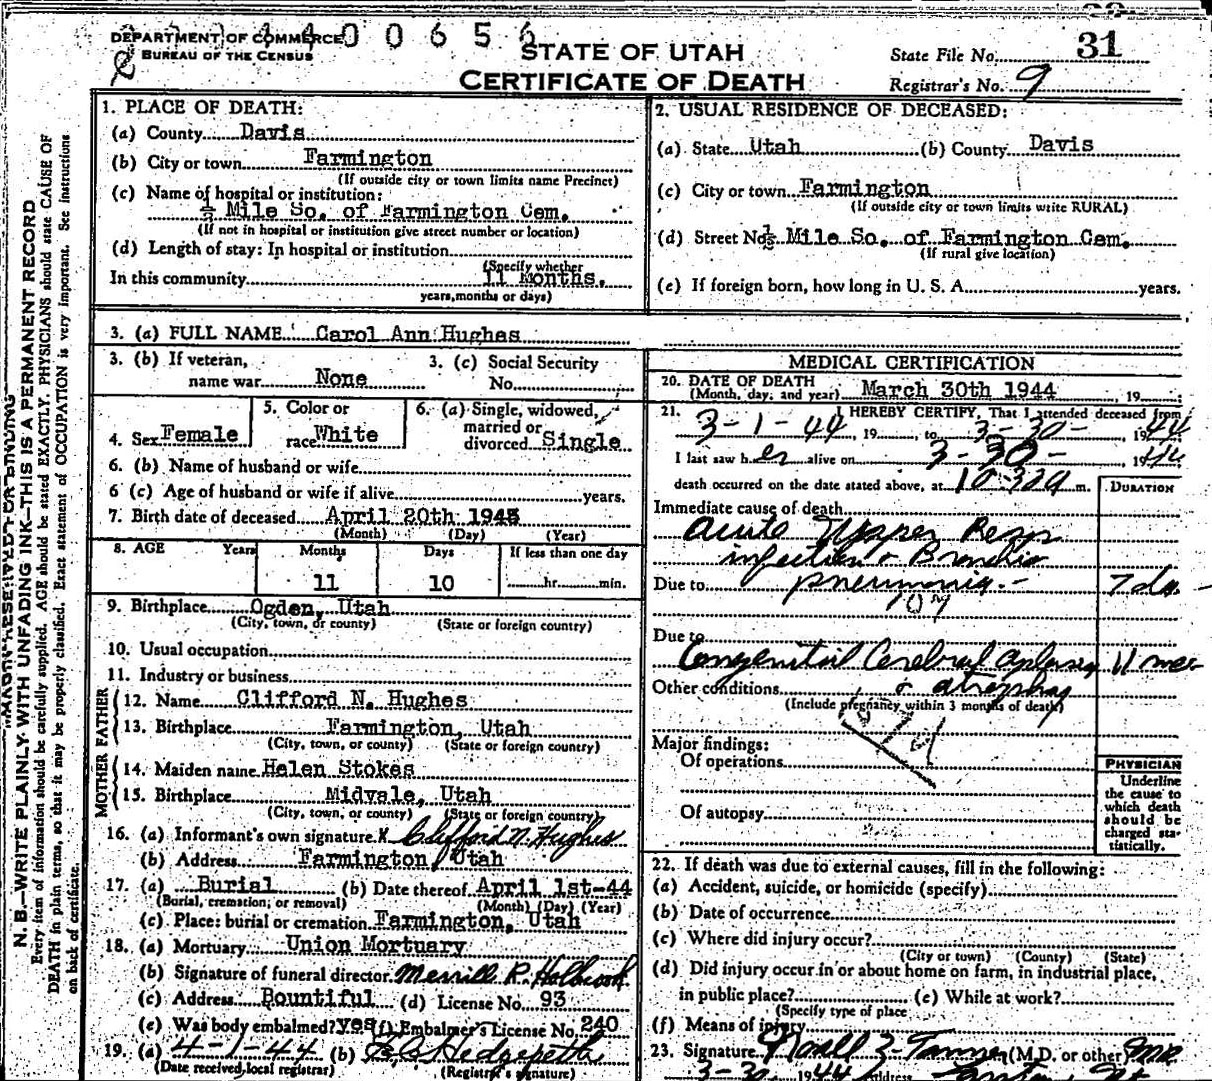 DEPARTMENT OF COMMERCE
BUREAU OF THE CENSUS
0 0 6 5 6
STATE OF UTAH
CERTIFICATE OF DEATH
State File No. 31
Registrar's No. 9
1. PLACE OF DEATH:
(a) County Davis
(b) City or town Farmington
(If outside city or town limits name Precinct)
(c) Name of hospital or institution:
½ Mile So. of Farmington Cem.
(If not in hospital or institution give street number or location)
(d) Length of stay: In hospital or institution
(Specify whether
In this community 11 Months.
years, months or days)
2. USUAL RESIDENCE OF DECEASED:
(a) State Utah (b) County Davis
(c) City or town Farmington
(If outside city or town limits write RURAL)
(d) Street No. ½ Mile So. of Farmington Cem.
(If rural give location)
(e) If foreign born, how long in U. S. A. years.
3. (a) FULL NAME Carol Ann Hughes
3. (b) If veteran, name war None
3. (c) Social Security No.
4. Sex Female
5. Color or race White
6. (a) Single, widowed, married or divorced Single
6. (b) Name of husband or wife
6 (c) Age of husband or wife if alive years.
7. Birth date of deceased April 20th 1943
(Month) (Day) (Year)
8. AGE Years Months Days If less than one day
11 10 hr. min.
9. Birthplace Ogden, Utah
(City, town, or county) (State or foreign country)
10. Usual occupation
11. Industry or business
FATHER
12. Name Clifford N. Hughes
13. Birthplace Farmington, Utah
(City, town, or county) (State or foreign country)
MOTHER
14. Maiden name Helen Stokes
15. Birthplace Midvale, Utah
(City, town, or county) (State or foreign country)
16. (a) Informant's own signature X Clifford N. Hughes
(b) Address Farmington, Utah
17. (a) Burial (b) Date thereof April 1st-44
(Burial, cremation, or removal) (Month) (Day) (Year)
(c) Place: burial or cremation Farmington, Utah
18. (a) Mortuary Union Mortuary
(b) Signature of funeral director Merrill R. Holbrook
(c) Address Bountiful (d) License No. 93
(e) Was body embalmed? yes (f) Embalmer's License No. 240
19. (a) 4-1-44 (b)
(Date received, local registrar) (Registrar's signature)
MEDICAL CERTIFICATION
20. DATE OF DEATH
(Month, day, and year) March 30th 1944, 19
21. I HEREBY CERTIFY, That I attended deceased from
3-1-44, 19 , to 3-30-, 1944
I last saw her alive on 3-30-, 1944
death occurred on the date stated above, at 10:32a m.
DURATION
Immediate cause of death
acute Upper Resp
infection & Broncho
Due to pneumonia.- 7 da.
107
Due to
Congenital Cerebral aplasia 11 mos
Other conditions & atrophy
(Include pregnancy within 3 months of death)
Major findings:
Of operations
Of autopsy
PHYSICIAN
Underline
the cause to
which death
should be
charged sta-
tistically.
22. If death was due to external causes, fill in the following:
(a) Accident, suicide, or homicide (specify)
(b) Date of occurrence
(c) Where did injury occur?
(City or town) (County) (State)
(d) Did injury occur in or about home on farm, in industrial place,
in public place? (e) While at work?
(Specify type of place
(f) Means of injury
23. Signature Noall Z. Tanner (M.D. or other) MD
3-30 1944 Address
N. B.—WRITE PLAINLY WITH UNFADING INK—THIS IS A PERMANENT RECORD
Every item of information should be carefully supplied. AGE should be stated EXACTLY. PHYSICIANS should state CAUSE OF
DEATH in plain terms, so that it may be properly classified. Exact statement of OCCUPATION is very important. See instructions
on back of certificate.